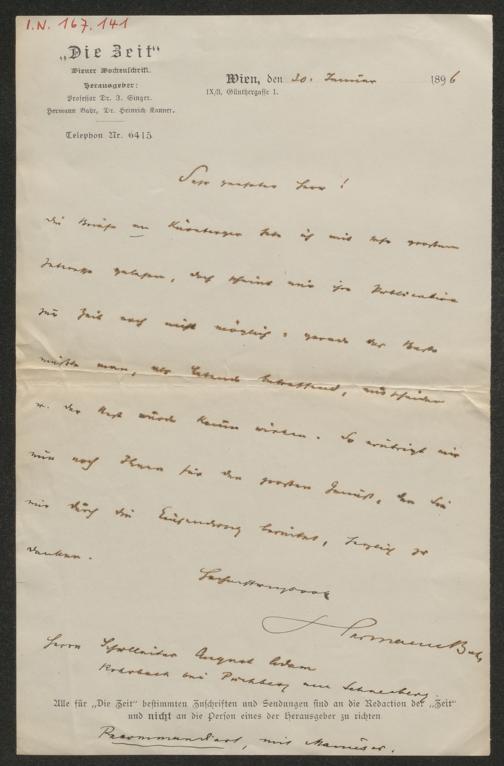 I.N. 167.141
„Die Zeit“
Wiener Wochenschrift.
Herausgeber:
Professor Dr. I. Singer.
Hermann Bahr, Dr. Heinrich Kanner.
Telephon Nr. 6415.
Wien, den 20. Januar 1896
IX/3, Günthergasse 1.
Sehr geehrter Herr!
die Briefe an Kürnberger habe ich mit sehr grossem
Interesse gelesen, doch scheint mir ihre Publication
zur Zeit noch nicht möglich: gerade das Beste
müßte man, als Lebende betreffend, ausscheiden
u. der Rest würde kaum wirken. So erübrigt mir
nur noch Ihnen für den großen Genuß, den Sie
mir durch die Einsendung bereitet, herzlich zu
danken.
Hochachtungsvoll
Hermann Bahr
Herrn Schulleiter August Adam
Rohrbach bei Puchberg am Schneeberg.
Alle für „Die Zeit“ bestimmten Zuschriften und Sendungen sind an die Redaction der „Zeit“
und nicht an die Person eines der Herausgeber zu richten
Recommandirt, mit Manuscr.